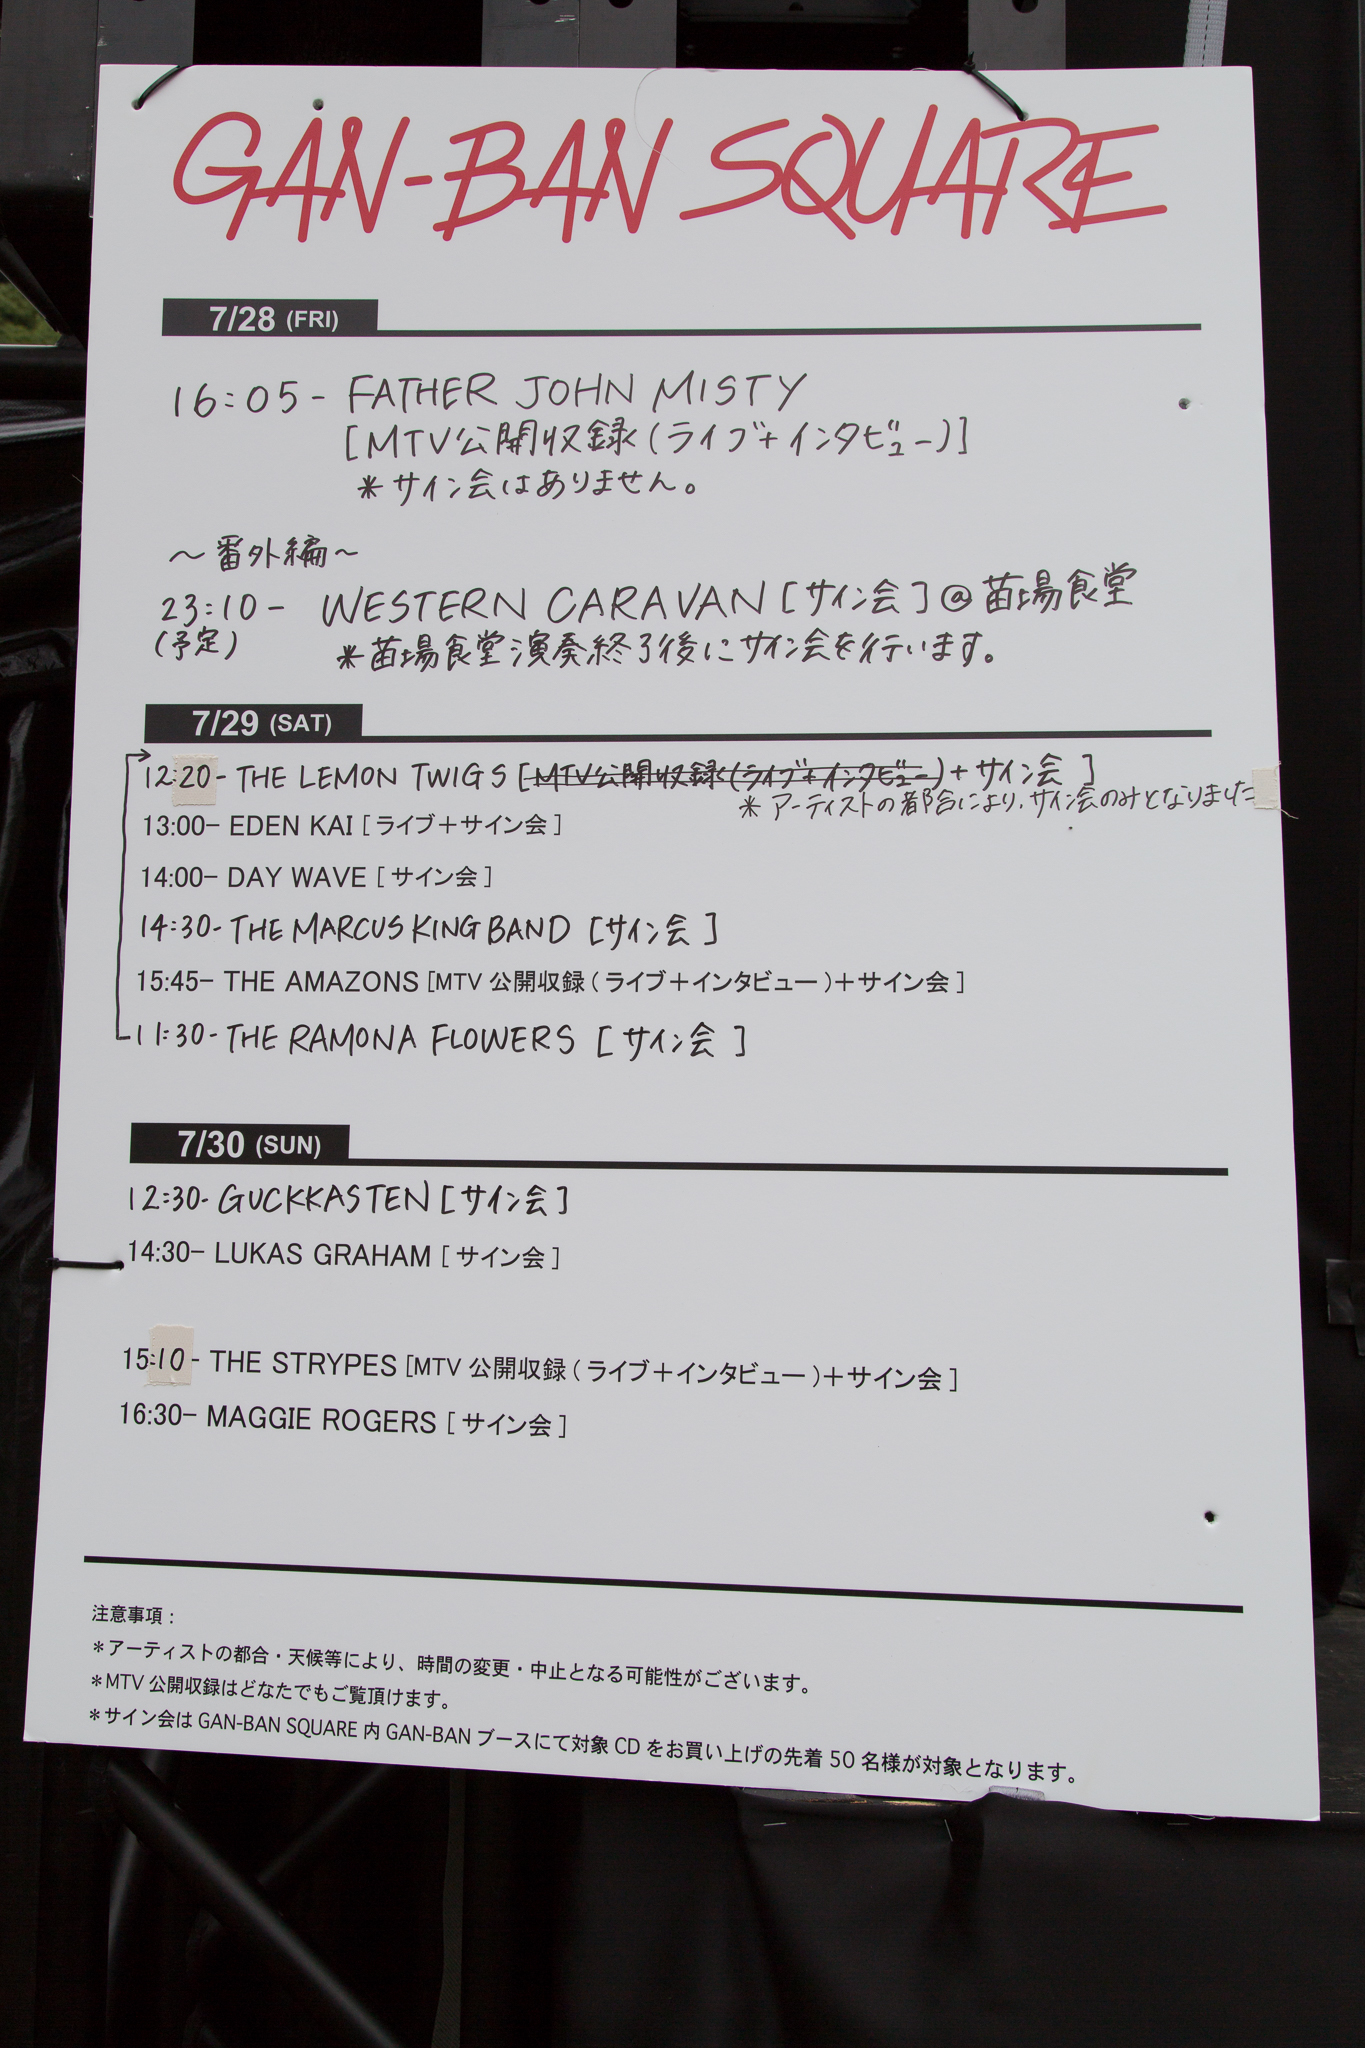 GAN-BAN SQUARE
7/28 (FRI)
16:05- FATHER JOHN MISTY
[MTV公開収録(ライブ+インタビュー)]
*サイン会はありません。
～番外編～
23:10- WESTERN CARAVAN [サイン会]@苗場食堂
(予定)
*苗場食堂演奏終了後にサイン会を行います。
7/29 (SAT)
12:20- THE LEMON TWIGS [MTV公開収録(ライブ+インタビュー)+サイン会]
*アーティストの都合により、サイン会のみとなりました
13:00- EDEN KAI [ライブ+サイン会]
14:00- DAY WAVE [サイン会]
14:30- THE MARCUS KING BAND [サイン会]
15:45- THE AMAZONS [MTV 公開収録(ライブ+インタビュー)+サイン会]
11:30- THE RAMONA FLOWERS [サイン会]
7/30 (SUN)
12:30- GUCKKASTEN [サイン会]
14:30- LUKAS GRAHAM [サイン会]
15:10- THE STRYPES [MTV 公開収録(ライブ+インタビュー)+サイン会]
16:30- MAGGIE ROGERS [サイン会]
注意事項：
*アーティストの都合・天候等により、時間の変更・中止となる可能性がございます。
*MTV 公開収録はどなたでもご覧頂けます。
*サイン会は GAN-BAN SQUARE 内 GAN-BAN ブースにて対象 CD をお買い上げの先着 50 名様が対象となります。